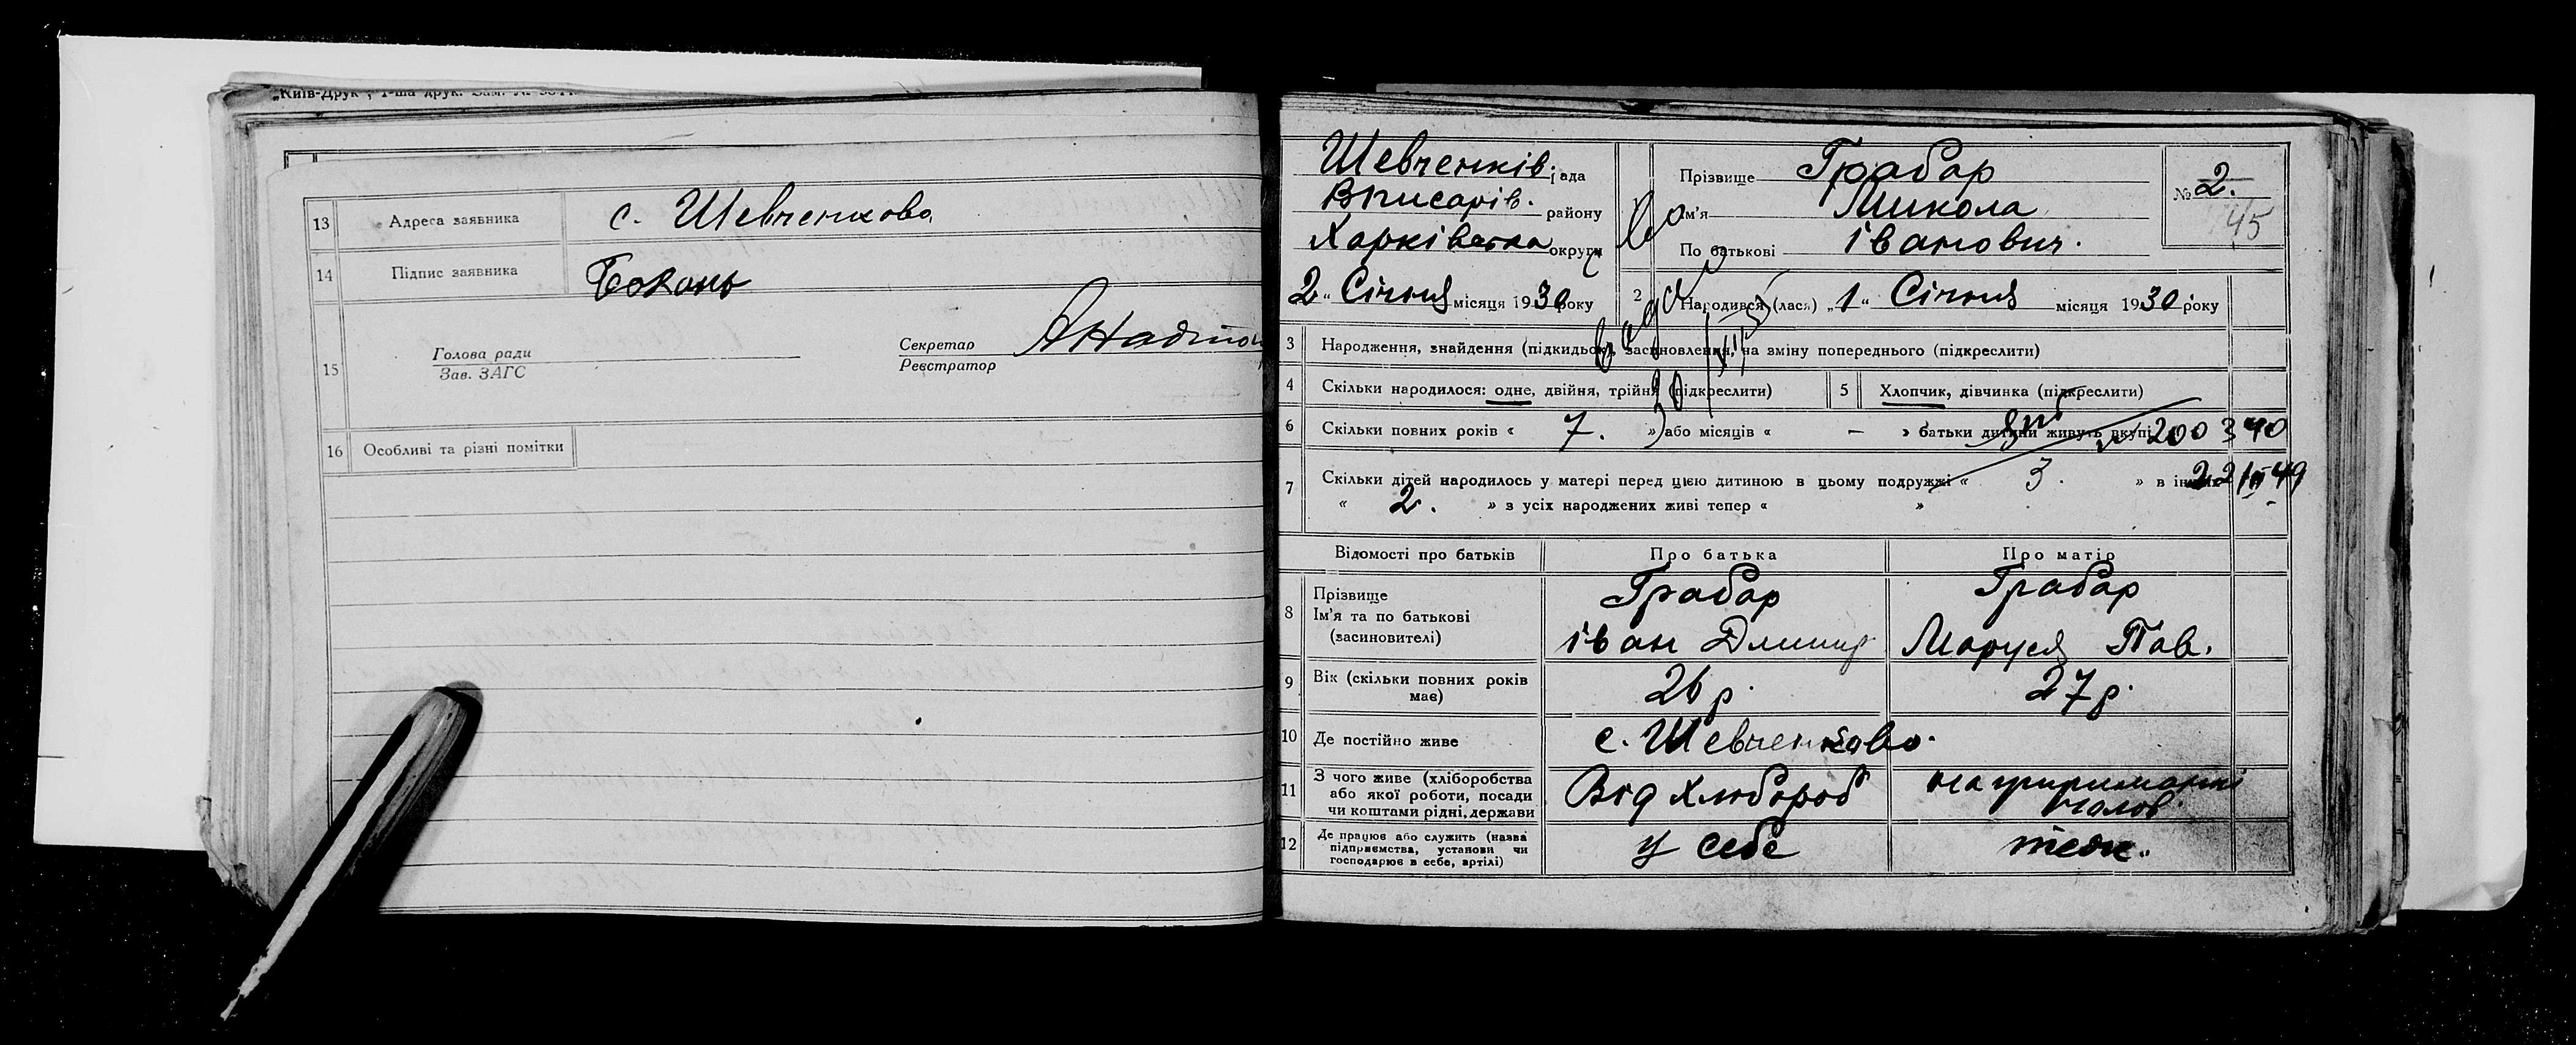 „Київ-Друк", 1-ша друк. Зам. №
13 Адреса заявника с. Шевченково
14 Підпис заявника Бокань
15 Голова ради
Зав. ЗАГС
Секретар
Реєстратор
16 Особливі та різні помітки
Шевченків. рада
Вписарів. району
Харківська округи
2 „ Січня місяця 1930 року
Прізвище Грабар
Ім'я Микола
По батькові Іванович.
№ 2.
45
2 Народився (лася) „ 1 “ Січня місяця 1930 року
3 Народження, знайдення (підкидьок), засиновлення, на зміну попереднього (підкреслити)
4 Скільки народилося: одне, двійня, трійня (підкреслити) 5 Хлопчик, дівчинка (підкреслити)
6 Скільки повних років « 7. » або місяців « — » батьки дитини живуть вкупі 200340
7 Скільки дітей народилось у матері перед цією дитиною в цьому подружжі « 3. » в інших
« 2. » з усіх народжених живі тепер « »
Відомості про батьків Про батька Про матір
8 Прізвище Грабар Грабар
Ім'я та по батькові
(засиновителі) Іван Дмитр Маруся Пав.
9 Вік (скільки повних років має) 26 р. 27 р.
10 Де постійно живе с. Шевченково.
11 З чого живе (хліборобства або якої роботи, посади чи коштами рідні, держави Від хлібороб на утриманні чолов.
12 Де працює або служить (назва підприємства, установи чи господарює в себе, артілі) у себе теж.